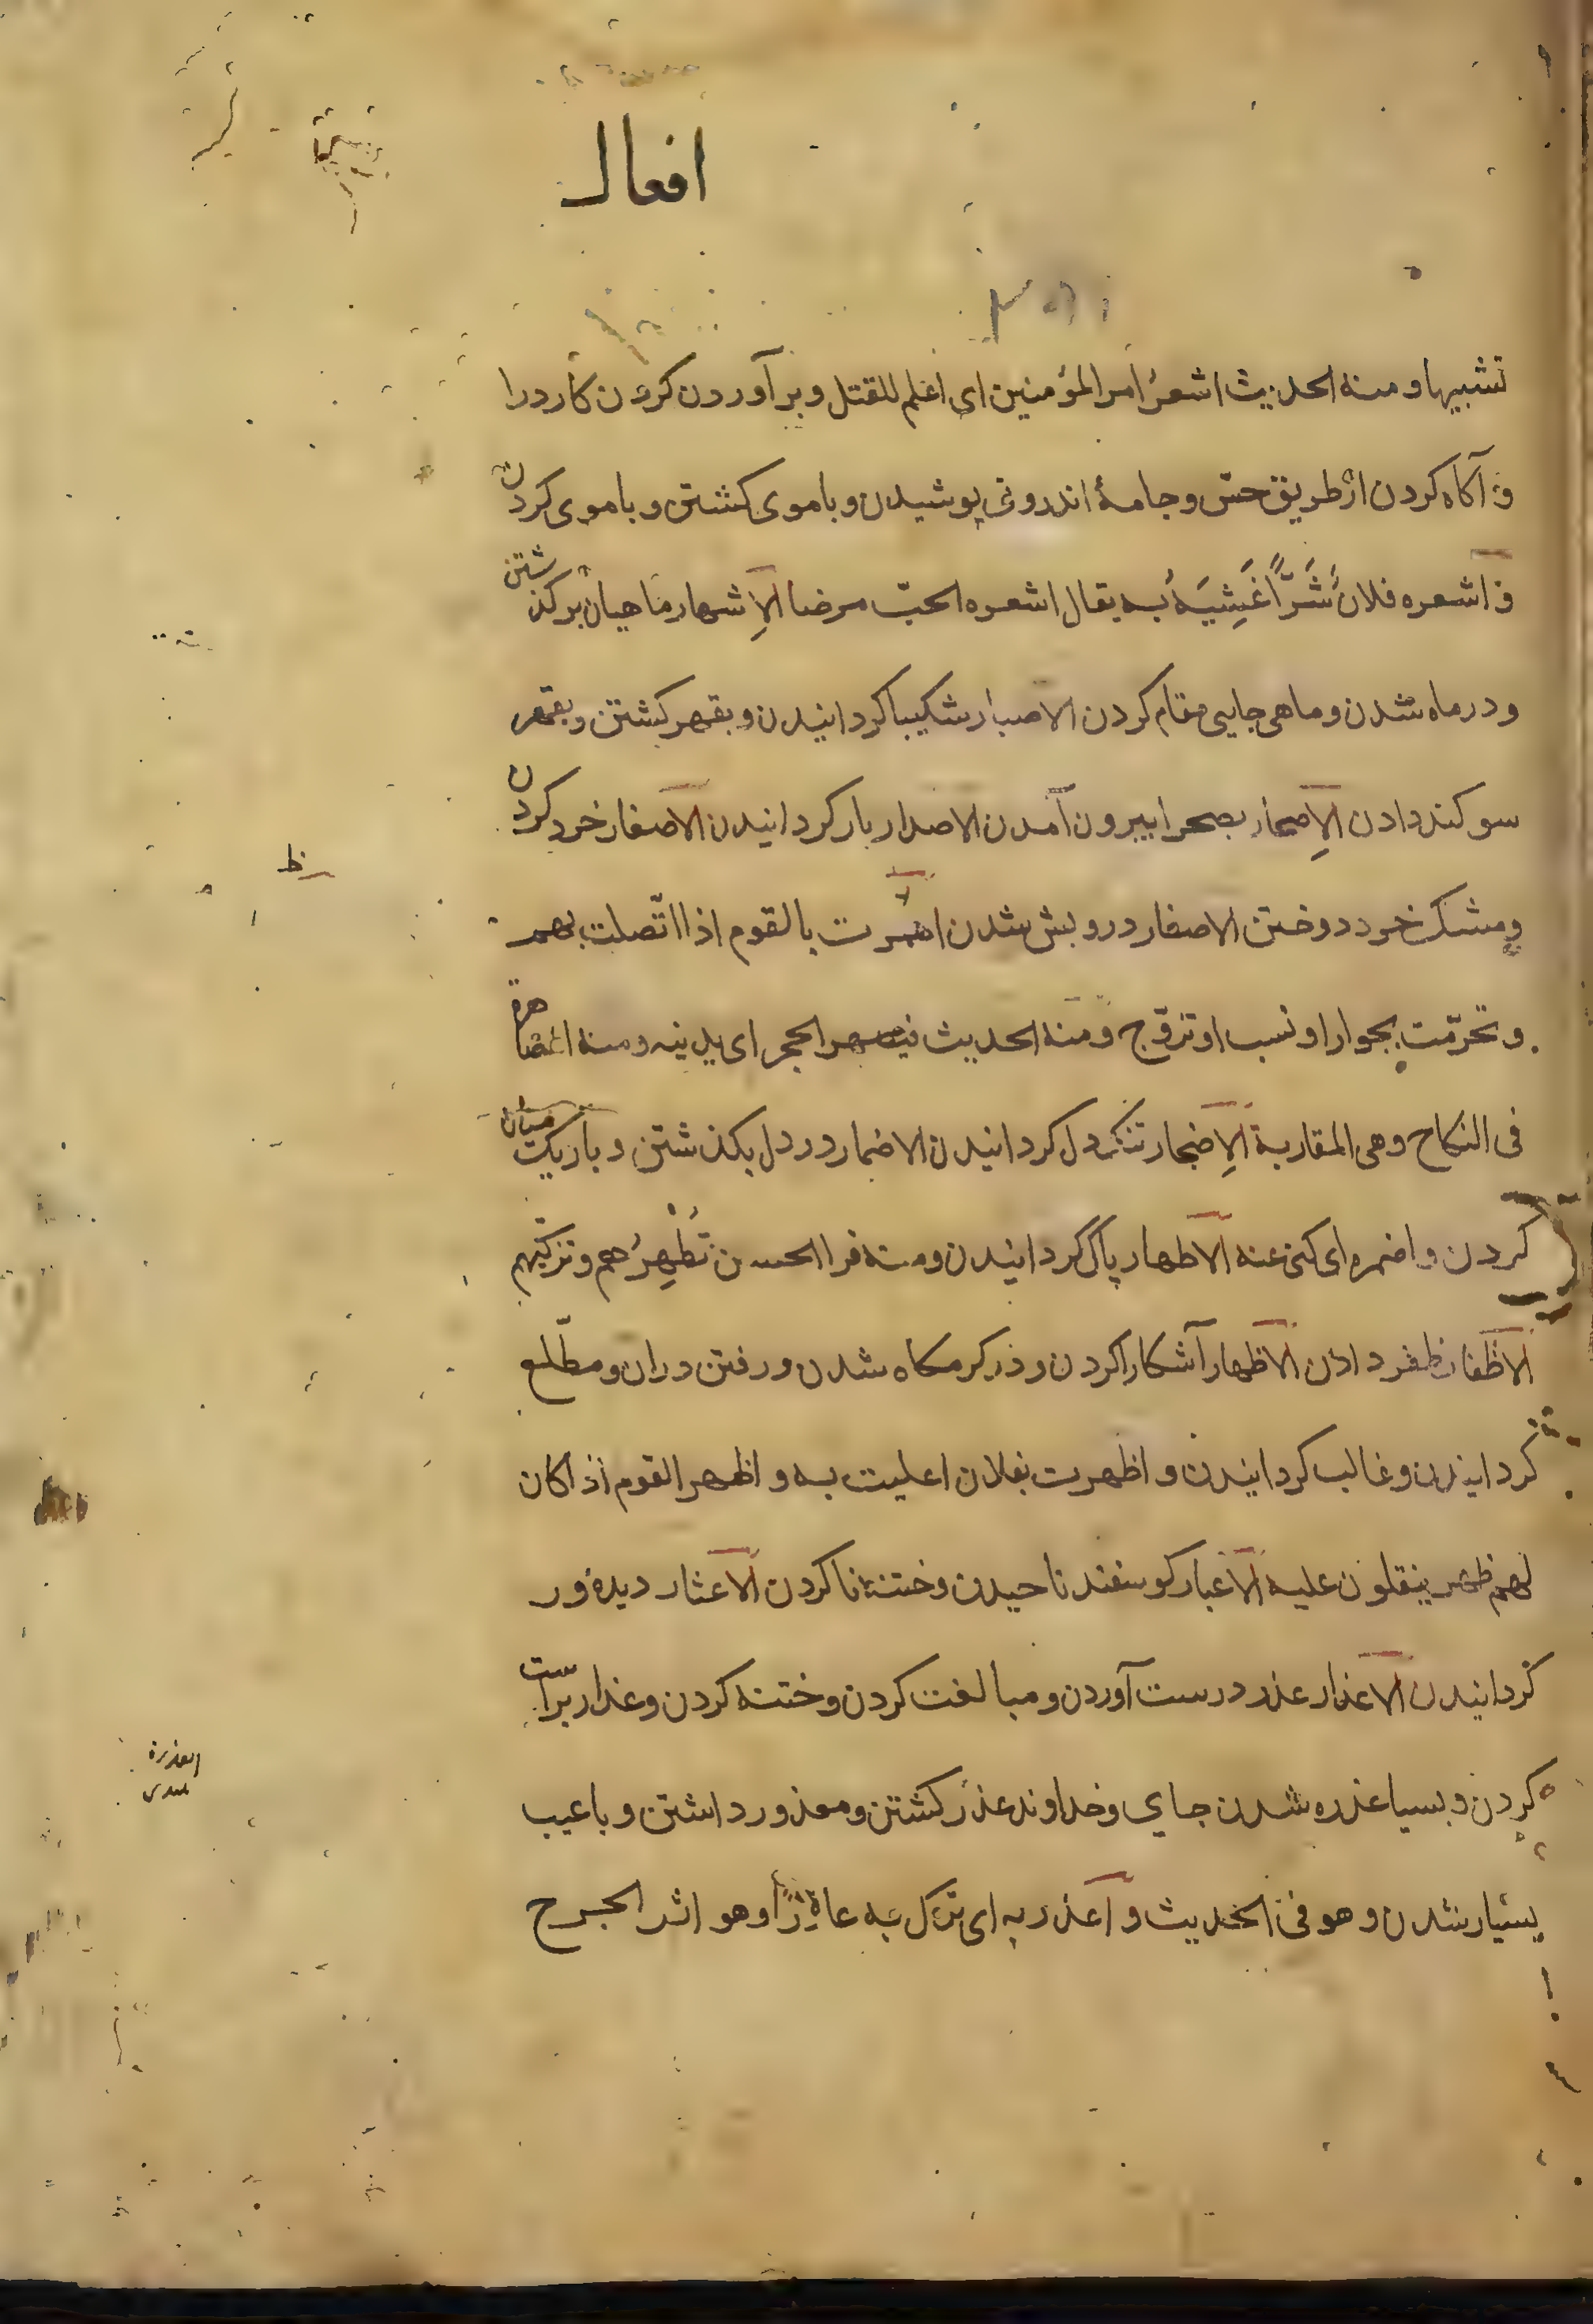 افعال
تشبيها و منه الحديث اشعر امر المؤمنين اى اعلم للقتل و برآوردن كردن كارد را
و آكاه كردن از طريق حسّ و جامۀ اندرونى پوشيدن و با موى كشتن و با موى كردن
و اشعره فلانٌ شَرًّا غَشِيَهُ به يقال اشعره الحبّ مرضا الاِشهار ماهيان بركذشتن
و در ماه شدن و ماهى جايى مقام كردن الاصبار شكيبا كردانيدن و بقهر كشتن و بقهر
سوكند دادن الاِصحار بصحرا بيرون آمدن الاصدار باز كردانيدن الاصغار خرد كردن
و مشك خرد دوختن الاصفار درويش شدن اصهرت بالقوم اذا اتّصلت بهم
و تحرّمت بجوار او نسب او تزوّج و منه الحديث فيصهر الحجر اى يدنيه و منه المصاهرة
فى النكاح و هى المقاربة الاِضجار تنك دل كردانيدن الاضمار در دل بكذشتن و باريك ميان
كردن و اضمره اى كنى عنه الاطهار پاك كردانيدن و منه قرا الحسن تُطْهِرُهم و تزكّيهم
الاظفار ظفر دادن الاظهار آشكارا كردن و در كرمكاه شدن و رفتن در ان و مطّلع
كردانيدن و غالب كردانيدن و اظهرت بفلان اعليت به و اظهر القوم اذا كان
لهم ظهر ينقلون عليه الاعبار كوسفند ناحيدن و ختنه نا كردن الاعثار ديده ور
كردانيدن الاعذار عذر درست آوردن و مبالغت كردن و ختنه كردن و عذار بر است
كردن و بسيا عذره شدن جاي و خداوند عذر كشتن و معذور داشتن و با عيب
بسيار شدن و هو فى الحديث و اعذر به اى ترك به عاذِرًا و هو اثر الجرح
العذرة